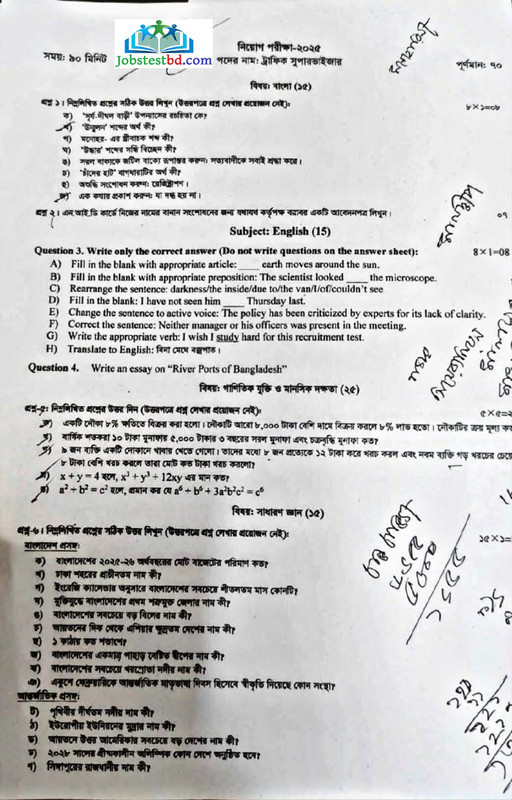 Jobstestbd.com
নিয়োগ পরীক্ষা-২০২৫
সময়: ৯০ মিনিট পদের নাম: ট্রাফিক সুপারভাইজার পূর্ণমান: ৭০
বিষয়: বাংলা (১৫)
প্রশ্ন ১। নিম্নলিখিত প্রশ্নের সঠিক উত্তর লিখুন (উত্তরপত্রে প্রশ্ন লেখার প্রয়োজন নেই): ৮×১=০৮
ক) 'সূর্য-দীঘল বাড়ী' উপন্যাসের রচয়িতা কে?
খ) 'উন্মূলন' শব্দের অর্থ কী?
গ) মনোহর- এর স্ত্রীবাচক শব্দ কী?
ঘ) 'উদ্ধার' শব্দের সন্ধি বিচ্ছেদ কী?
ঙ) সরল বাক্যকে জটিল বাক্যে রূপান্তর করুন: সত্যবাদীকে সবাই শ্রদ্ধা করে।
চ) 'চাঁদের হাট' বাগধারাটির অর্থ কী?
ছ) অশুদ্ধি সংশোধন করুন: রেজিষ্ট্রাশণ।
জ) এক কথায় প্রকাশ করুন: যা দগ্ধ হয় না।
প্রশ্ন ২। এন.আই.ডি কার্ডে নিজের নামের বানান সংশোধনের জন্য যথাযথ কর্তৃপক্ষ বরাবর একটি আবেদনপত্র লিখুন। ০৭
Subject: English (15)
Question 3. Write only the correct answer (Do not write questions on the answer sheet): 8×1=08
A) Fill in the blank with appropriate article: ____ earth moves around the sun.
B) Fill in the blank with appropriate preposition: The scientist looked ____ the microscope.
C) Rearrange the sentence: darkness/the inside/due to/the van/I/of/couldn't see
D) Fill in the blank: I have not seen him ____ Thursday last.
E) Change the sentence to active voice: The policy has been criticized by experts for its lack of clarity.
F) Correct the sentence: Neither manager or his officers was present in the meeting.
G) Write the appropriate verb: I wish I study hard for this recruitment test.
H) Translate to English: বিনা মেঘে বজ্রপাত।
Question 4. Write an essay on "River Ports of Bangladesh"
বিষয়: গাণিতিক যুক্তি ও মানসিক দক্ষতা (২৫)
প্রশ্ন-৫: নিম্নলিখিত প্রশ্নের উত্তর দিন (উত্তরপত্রে প্রশ্ন লেখার প্রয়োজন নেই): ৫×৫=২
ক) একটি নৌকা ৮% ক্ষতিতে বিক্রয় করা হলো। নৌকাটি আরো ৮,০০০ টাকা বেশি দামে বিক্রয় করলে ৮% লাভ হতো। নৌকাটির ক্রয় মূল্য কত
খ) বার্ষিক শতকরা ১০ টাকা মুনাফায় ৫,০০০ টাকার ৩ বছরের সরল মুনাফা এবং চক্রবৃদ্ধি মুনাফা কত?
গ) ৯ জন ব্যক্তি একটি দোকানে খাবার খেতে গেলো। তাদের মধ্যে ৮ জন প্রত্যেকে ১২ টাকা করে খরচ করল এবং নবম ব্যক্তি গড় খরচের চেয়ে
৮ টাকা বেশি খরচ করলে তারা মোট কত টাকা খরচ করলো?
ঘ) x + y = 4 হলে, x³ + y³ + 12xy এর মান কত?
ঙ) a² + b² = c² হলে, প্রমাণ কর যে a⁶ + b⁶ + 3a²b²c² = c⁶
বিষয়: সাধারণ জ্ঞান (১৫)
প্রশ্ন-৬। নিম্নলিখিত প্রশ্নের সঠিক উত্তর লিখুন (উত্তরপত্রে প্রশ্ন লেখার প্রয়োজন নেই): ১৫×১=
বাংলাদেশ প্রসঙ্গ:
ক) বাংলাদেশের ২০২৫-২৬ অর্থবছরের মোট বাজেটের পরিমাণ কত?
খ) ঢাকা শহরের প্রাচীনতম নাম কী?
গ) ইংরেজি ক্যালেন্ডার অনুসারে বাংলাদেশের সবচেয়ে শীতলতম মাস কোনটি?
ঘ) মুক্তিযুদ্ধে বাংলাদেশের প্রথম শত্রুমুক্ত জেলার নাম কী?
ঙ) বাংলাদেশের সবচেয়ে বড় বিলের নাম কী?
চ) আয়তনের দিক থেকে এশিয়ার ক্ষুদ্রতম দেশের নাম কী?
ছ) ১ কাঠায় কত শতাংশ?
জ) বাংলাদেশের একমাত্র পাহাড় বেষ্টিত দ্বীপের নাম কী?
ঝ) বাংলাদেশের সবচেয়ে খরস্রোতা নদীর নাম কী?
ঞ) একুশে ফেব্রুয়ারিকে আন্তর্জাতিক মাতৃভাষা দিবস হিসেবে স্বীকৃতি দিয়েছে কোন সংস্থা?
আন্তর্জাতিক প্রসঙ্গ:
ট) পৃথিবীর দীর্ঘতম নদীর নাম কী?
ঠ) ইউরোপীয় ইউনিয়নের মুদ্রার নাম কী?
ড) আয়তনে উত্তর আমেরিকার সবচেয়ে বড় দেশের নাম কী?
ঢ) ২০২৮ সালের গ্রীষ্মকালীন অলিম্পিক কোন দেশে অনুষ্ঠিত হবে?
ণ) সিঙ্গাপুরের রাজধানীর নাম কী?